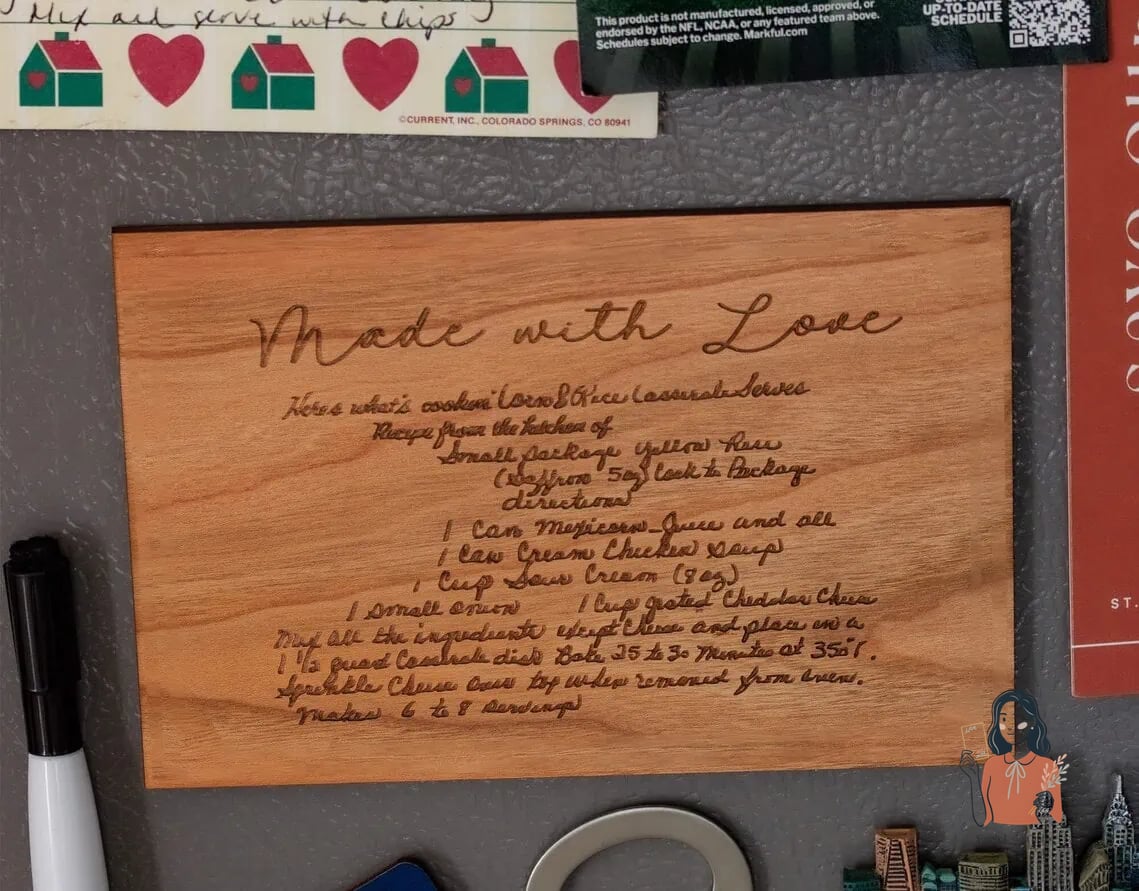 Mix and serve with chips
©CURRENT, INC., COLORADO SPRINGS, CO 80941
This product is not manufactured, licensed, approved, or
endorsed by the NFL, NCAA, or any featured team above.
Schedules subject to change. Markful.com
UP-TO-DATE
SCHEDULE
Made with Love
Here's what's cookin' Corn & Rice Casserole Serves
Recipe from the kitchen of
Small package yellow Rice
(Saffron 5oz) Cook to Package
directions
1 Can Mexicorn-Juice and all
1 Can Cream Chicken Soup
1 Cup Sour Cream (8oz)
1 small onion 1 Cup grated Cheddar Cheese
Mix all the ingredients except Cheese and place in a
1 1/2 quart Casserole dish Bake 25 to 30 Minutes at 350°.
Sprinkle Cheese over top when removed from oven.
Makes 6 to 8 servings
ST.